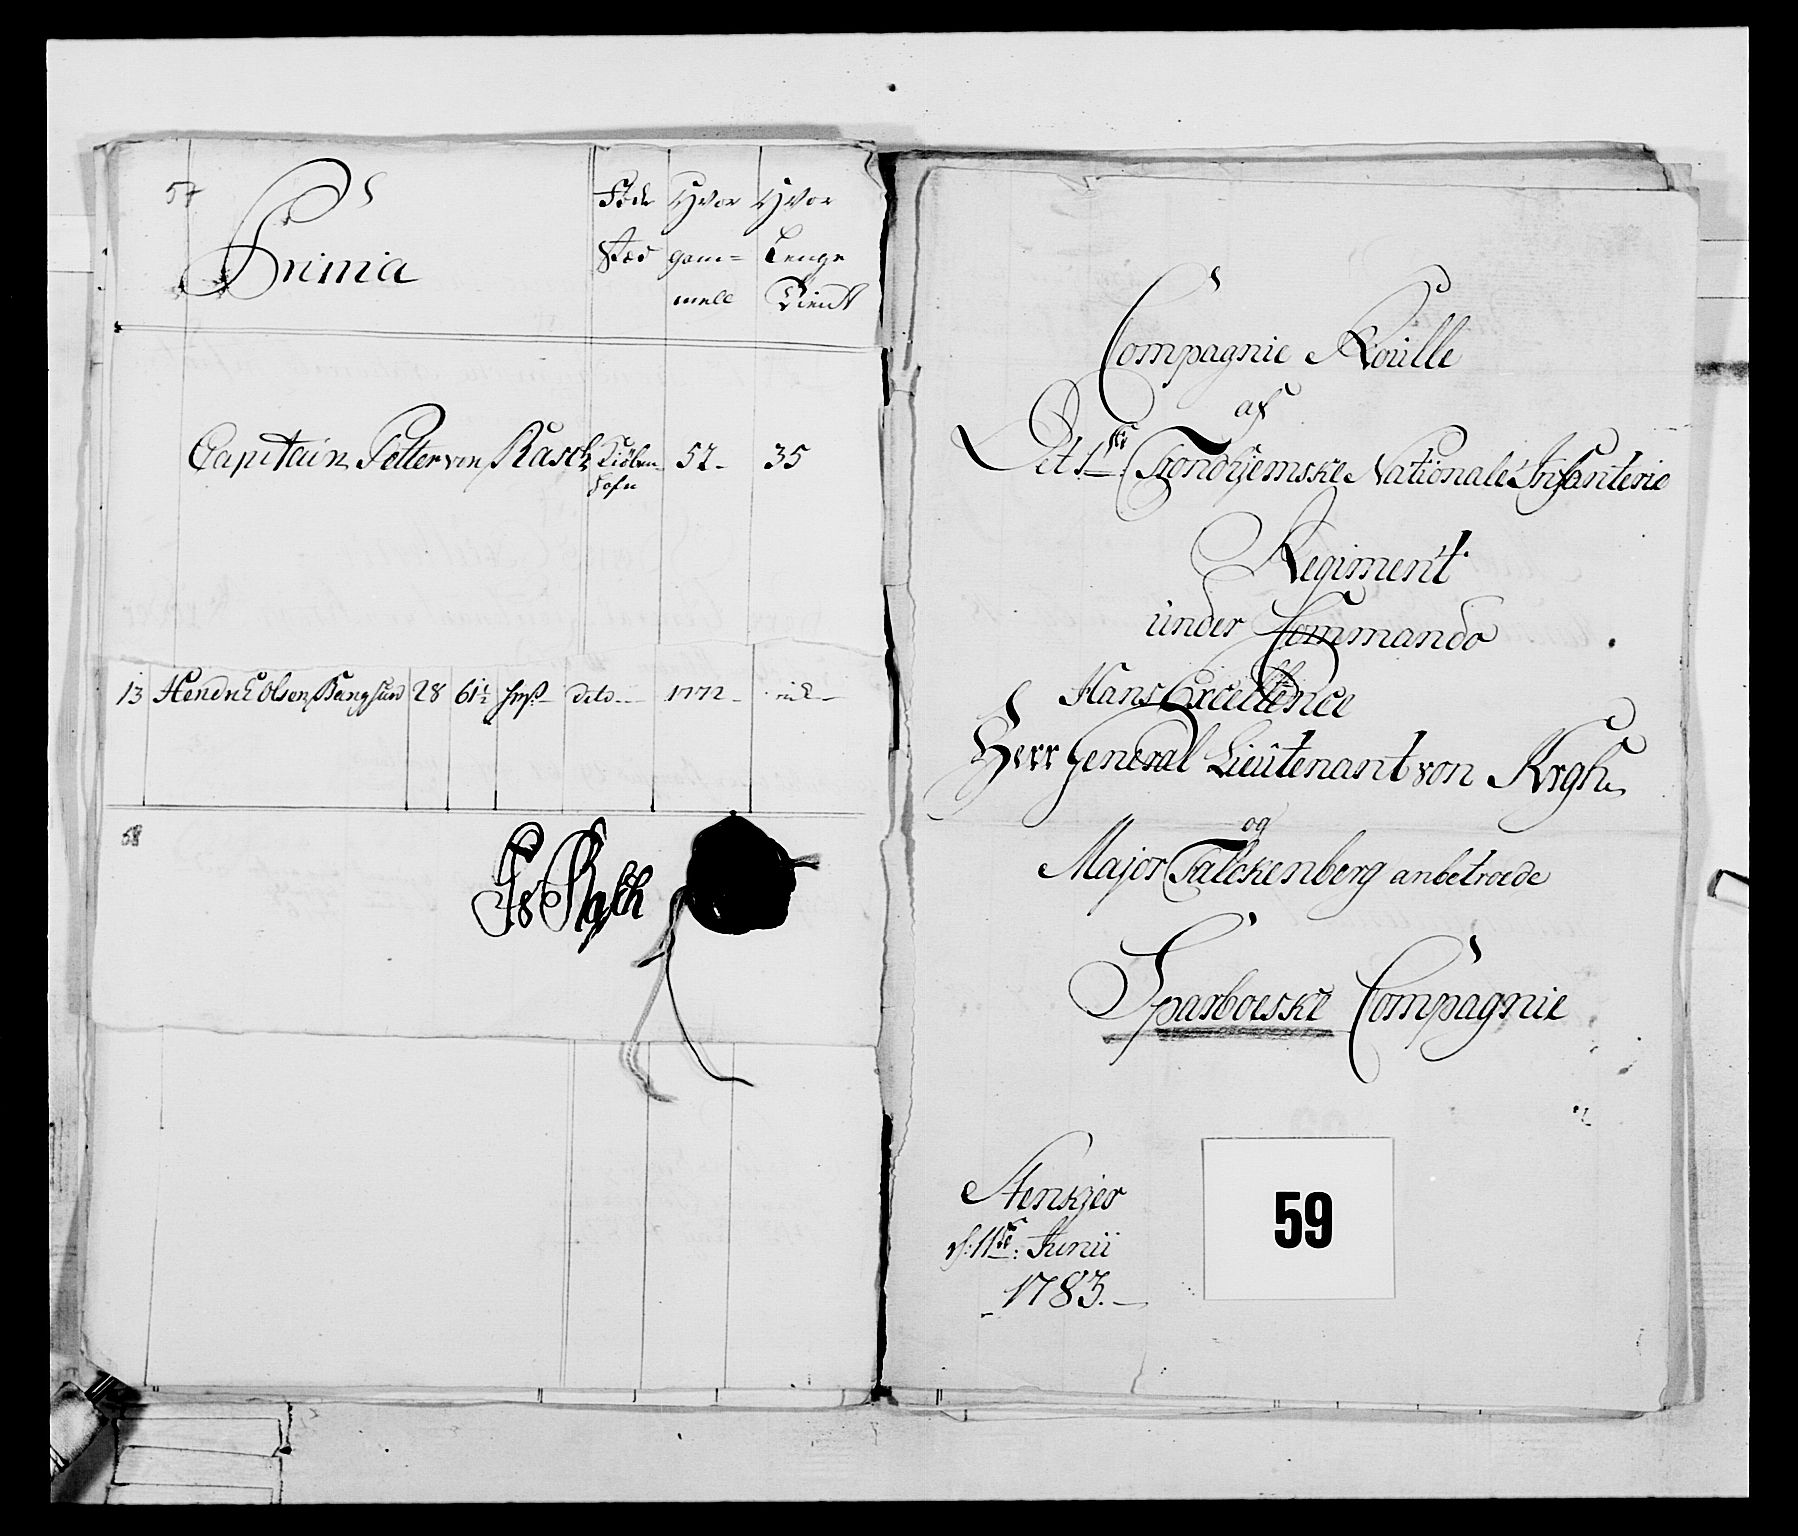 57
Primia
Føde Hvor Hvor
Stæd gam= Lenge
mell Tient
Capitain Petter von Rasch Kiøben 52 35
hafn
13 Hendrich Olsen Bangsund 28 61½ dito 1772
58
Compagnie Roulle
af
Det 1ste Trondhjemske Nationale Infanterie
Regiment
under Commando
Hans Excellence
Herr General Lieutenant von Krogh
og
Major Falckenberg anbetroede
Sparboeske Compagnie
59
Stenkjer
d: 11te: Junii
1783.